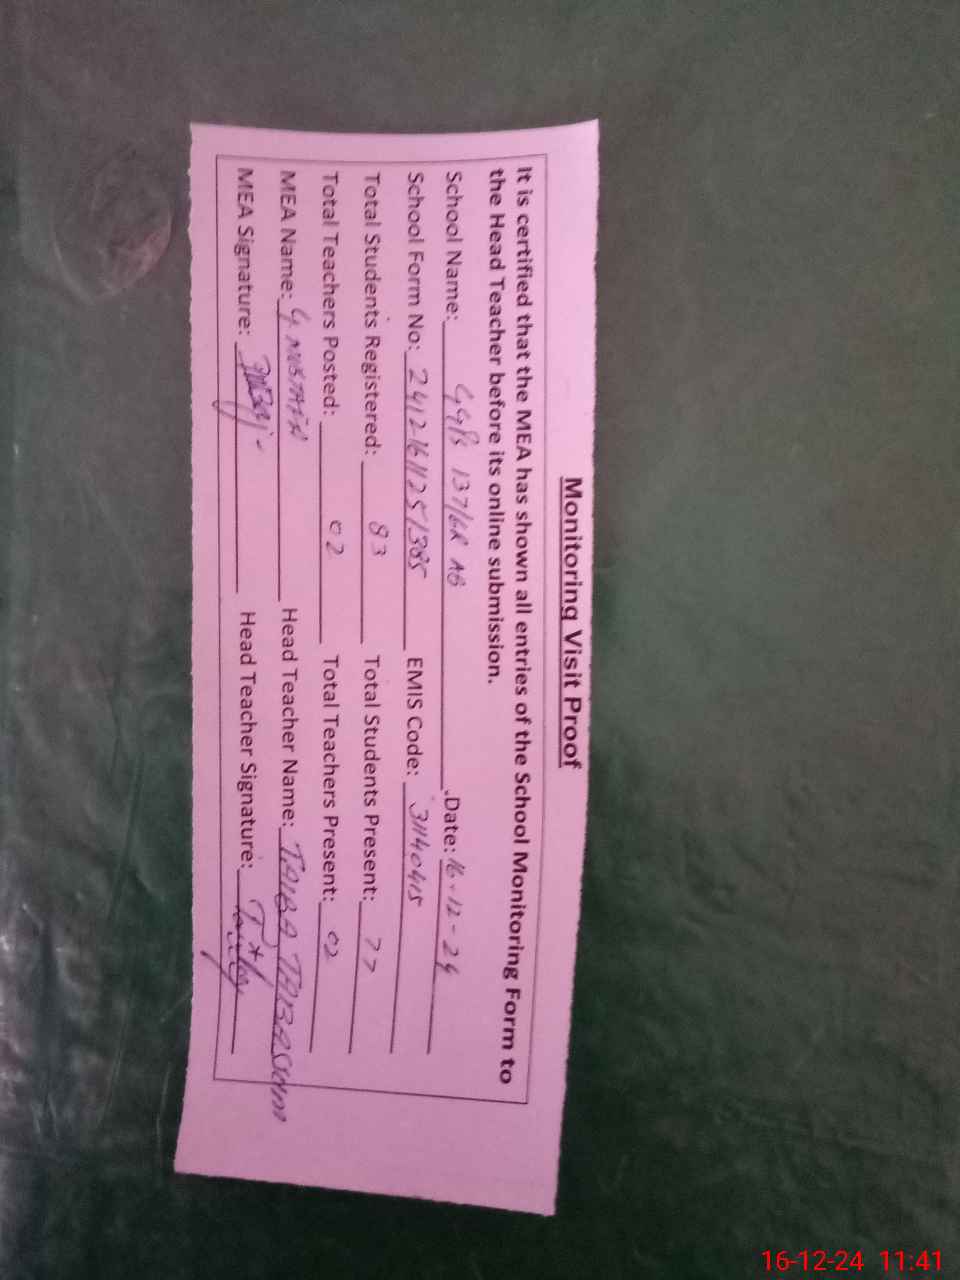 Monitoring Visit Proof
It is certified that the MEA has shown all entries of the School Monitoring Form to
the Head Teacher before its online submission.
School Name: GGPS 137/6R AB Date: 16-12-24
School Form No: 24121611251385 EMIS Code: 31140415
Total Students Registered: 83 Total Students Present: 77
Total Teachers Posted: 02 Total Teachers Present: 02
MEA Name: G MUSTAFA Head Teacher Name: TAIBA TABASSUM
MEA Signature: Head Teacher Signature:
16-12-24 11:41